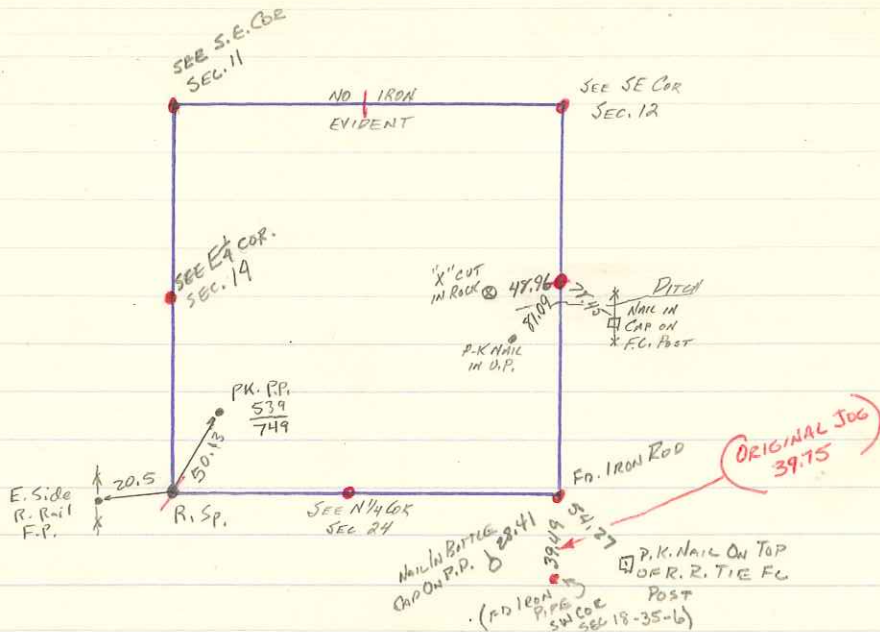 SEE S.E. COR
SEC. 11
NO IRON
EVIDENT
SEE SE COR
SEC. 12
SEE E 1/4 COR.
SEC. 14
"X" CUT
IN ROCK
47.96
78.45
81.09
DITCH
NAIL IN
CAP ON
F.C. POST
P-K NAIL
IN U.P.
PK. P.P.
539
749
50.13
20.5
E. Side
R. Rail
F.P.
R. Sp.
SEE N 1/4 COR
SEC 24
FD. IRON ROD
ORIGINAL JOG
39.75
28.41
39.49
54.27
NAIL IN BOTTLE
CAP ON P.P.
P.K. NAIL ON TOP
OF R.R. TIE FC
POST
(FD IRON
PIPE
SW COR
SEC 18-35-6)